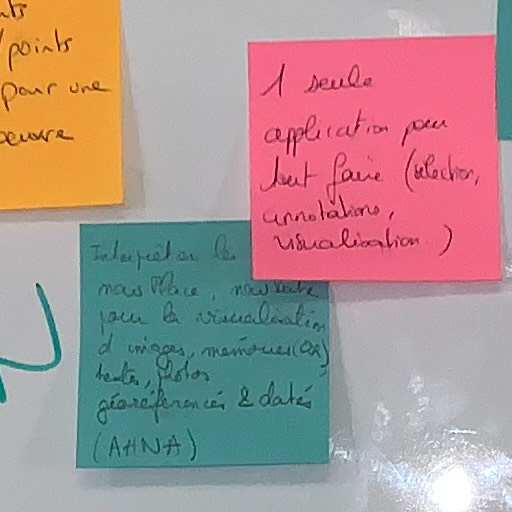 points
pour une
oeuvre
1 seule
application pour
tout faire (sélection,
annotations,
visualisation)
Interpréter les
pour la visualisation
d'images, mémoires
textes, photos
géoréférencés & datés
(AHNA)